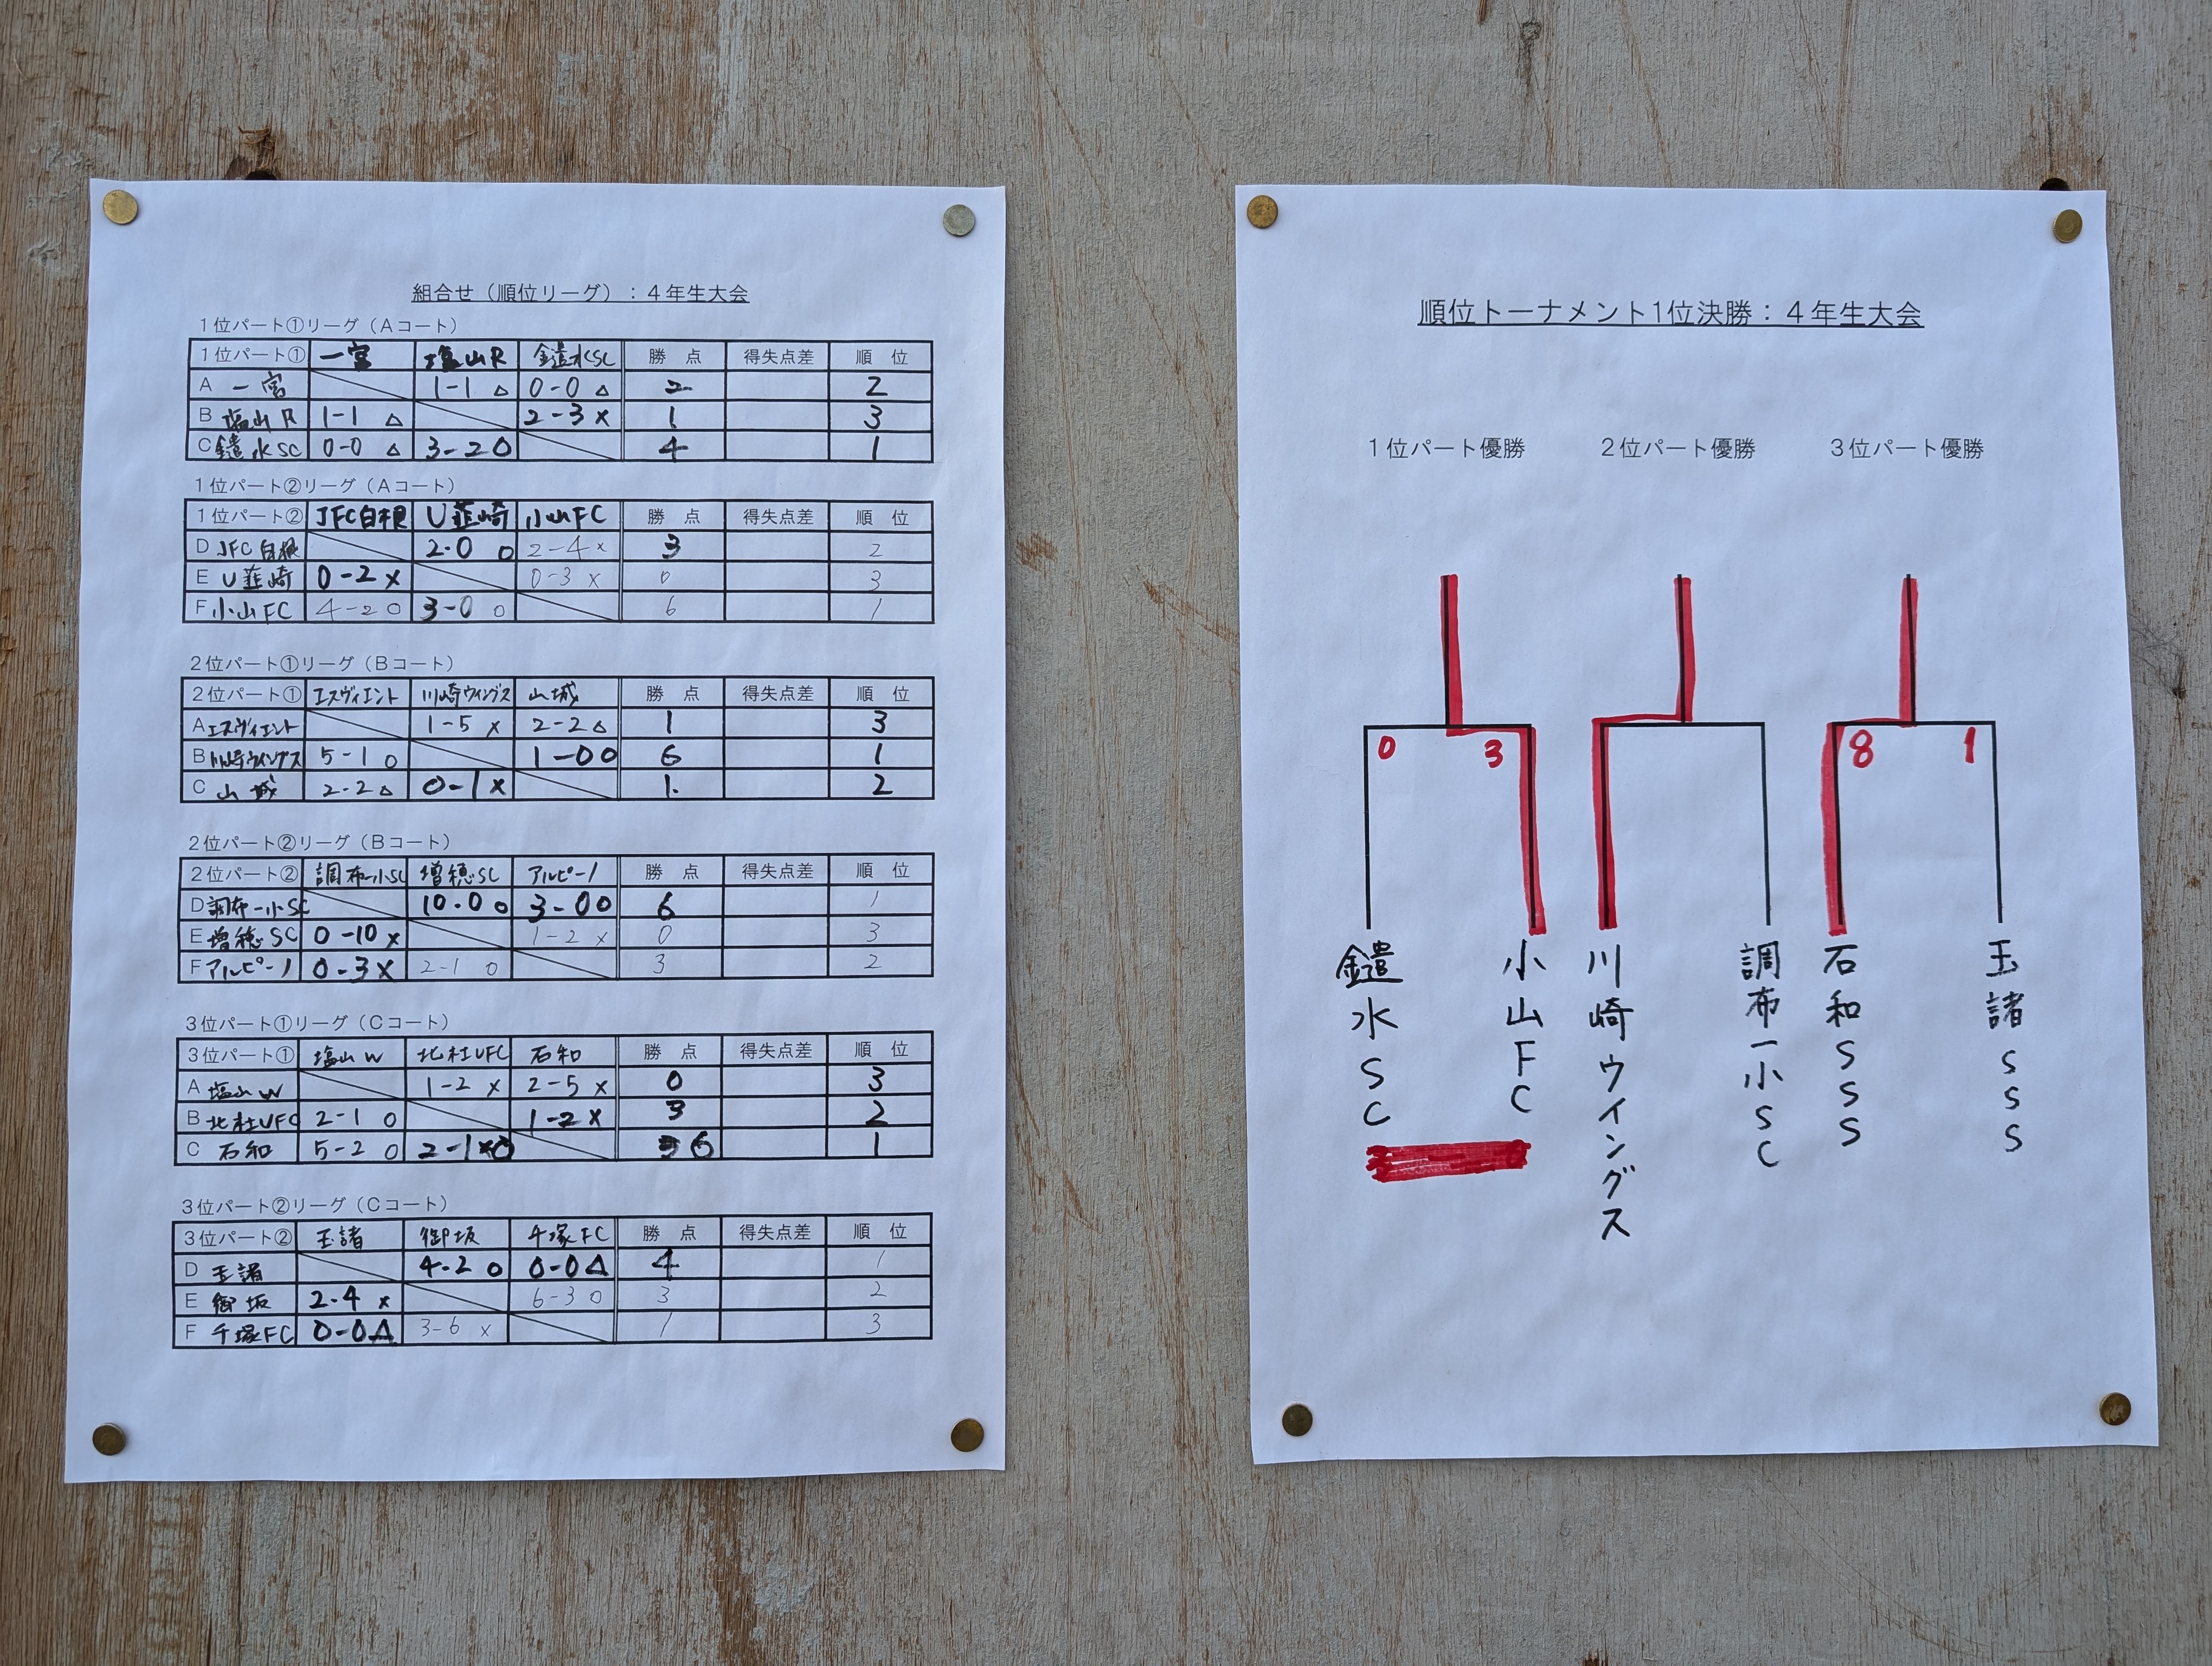 組合せ(順位リーグ):4年生大会
1位パート①リーグ(Aコート)
1位パート① 一宮 塩山R 鑓水SC 勝 点 得失点差 順 位
A 一宮 1-1 △ 0-0 △ 2 2
B 塩山R 1-1 △ 2-3 × 1 3
C 鑓水SC 0-0 △ 3-2 ○ 4 1
1位パート②リーグ(Aコート)
1位パート② JFC白根 U韮崎 小山FC 勝 点 得失点差 順 位
D JFC白根 2-0 ○ 2-4 × 3 2
E U韮崎 0-2 × 0-3 × 0 3
F 小山FC 4-2 ○ 3-0 ○ 6 1
2位パート①リーグ(Bコート)
2位パート① エスヴィエント 川崎ウィングス 山城 勝 点 得失点差 順 位
A エスヴィエント 1-5 × 2-2 △ 1 3
B 川崎ウィングス 5-1 ○ 1-0 ○ 6 1
C 山城 2-2 △ 0-1 × 1 2
2位パート②リーグ(Bコート)
2位パート② 調布一小SC 増穂SC アルピーノ 勝 点 得失点差 順 位
D 調布一小SC 10-0 ○ 3-0 ○ 6 1
E 増穂SC 0-10 × 1-2 × 0 3
F アルピーノ 0-3 × 2-1 ○ 3 2
3位パート①リーグ(Cコート)
3位パート① 塩山W 北杜UFC 石和 勝 点 得失点差 順 位
A 塩山W 1-2 × 2-5 × 0 3
B 北杜UFC 2-1 ○ 1-2 × 3 2
C 石和 5-2 ○ 2-1 ○ 6 1
3位パート②リーグ(Cコート)
3位パート② 玉諸 御坂 千塚FC 勝 点 得失点差 順 位
D 玉諸 4-2 ○ 0-0 △ 4 1
E 御坂 2-4 × 6-3 ○ 3 2
F 千塚FC 0-0 △ 3-6 × 1 3
順位トーナメント1位決勝:4年生大会
1位パート優勝 2位パート優勝 3位パート優勝
0 3 8 1
鑓水SC
小山FC
川崎ウイングス
調布一小SC
石和SSS
玉諸SSS